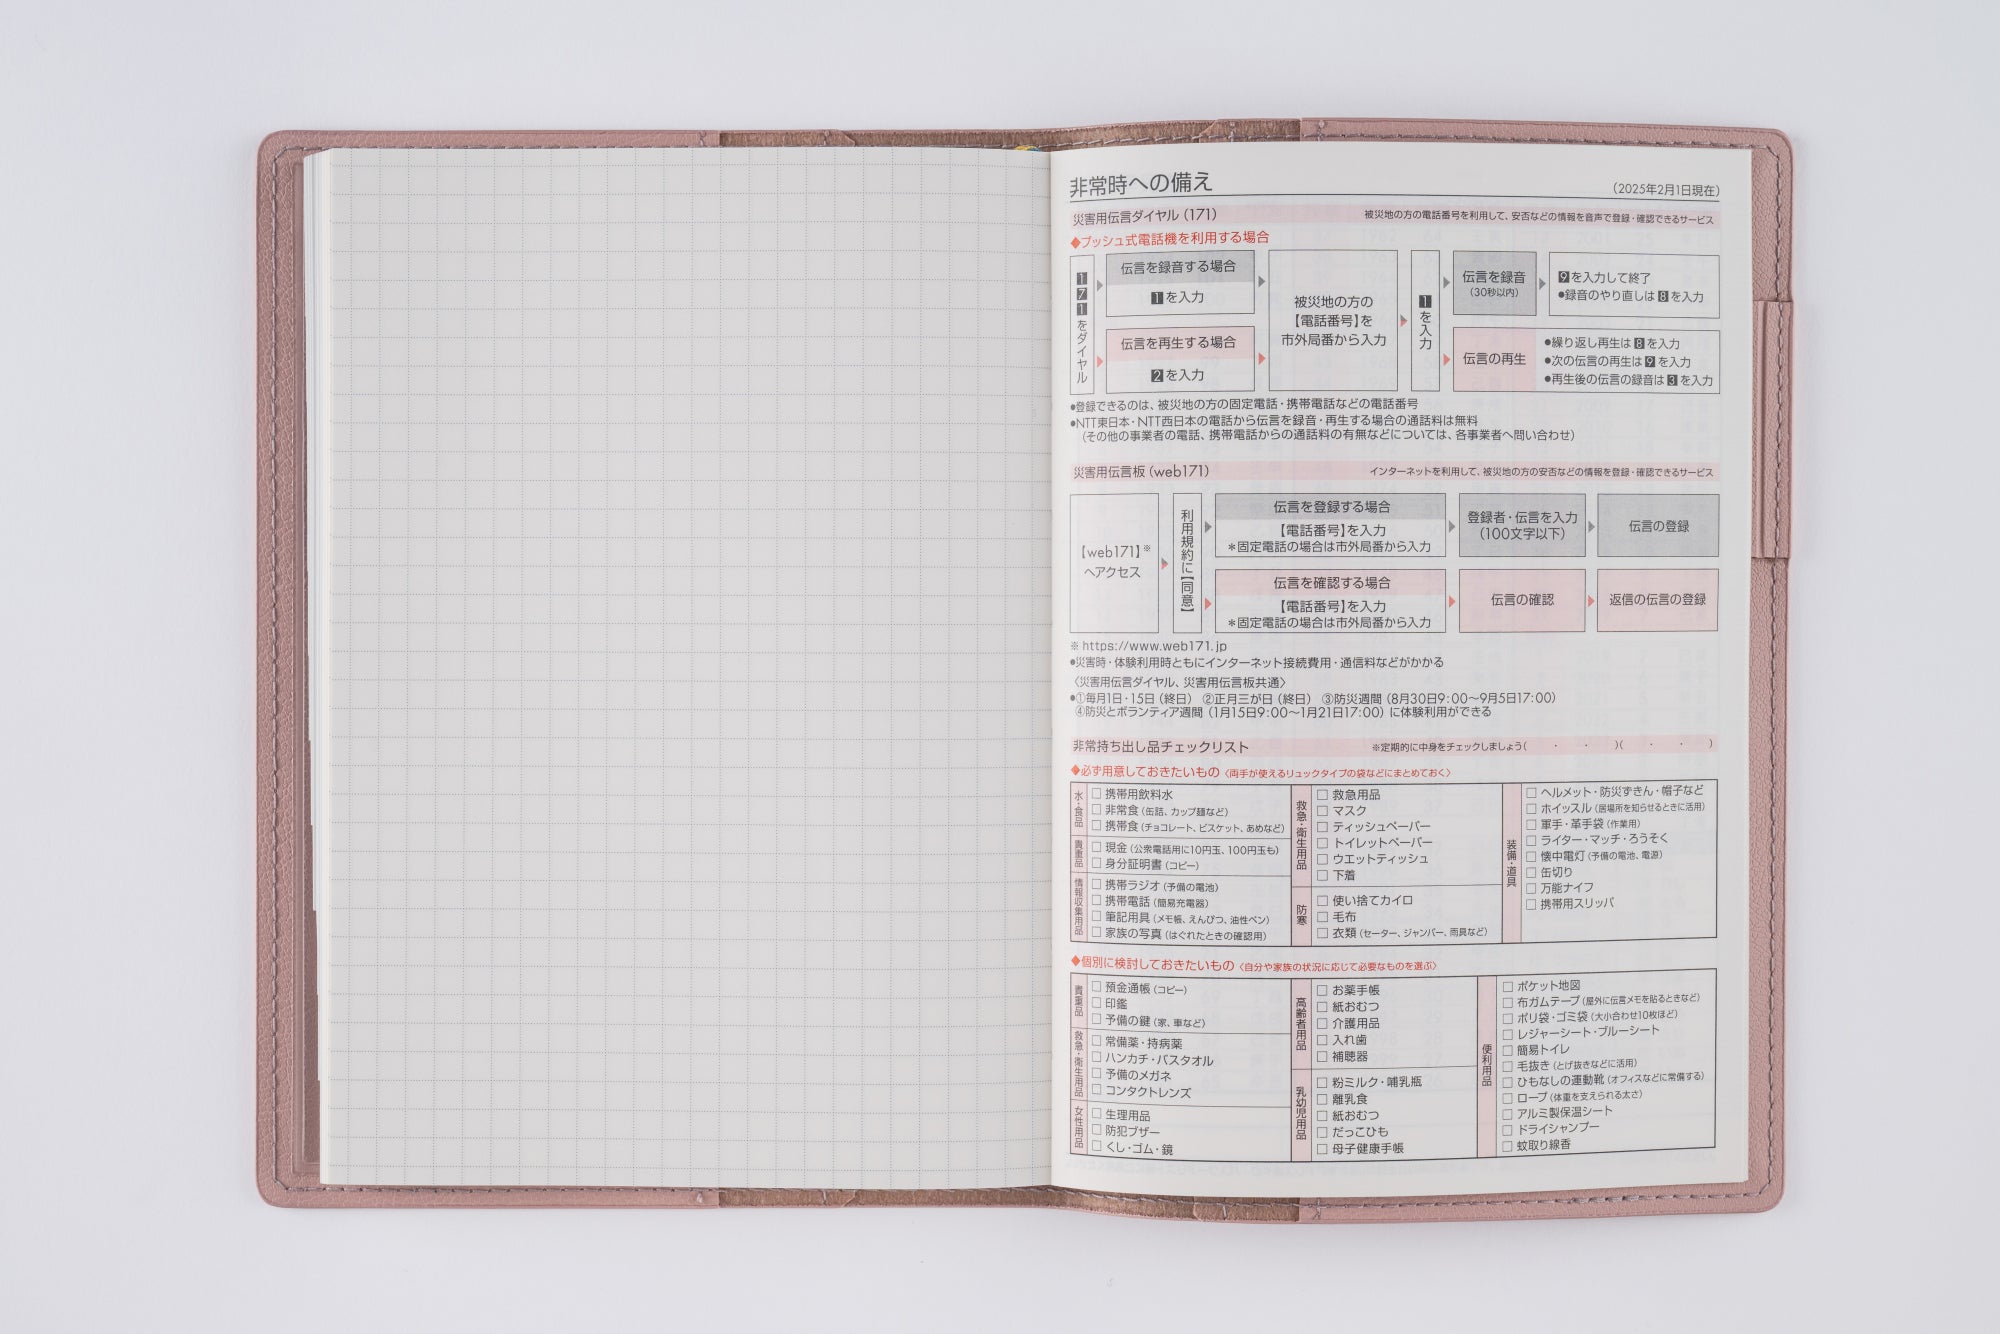 非常時への備え
（2025年2月1日現在）
災害用伝言ダイヤル（171）
被災地の方の電話番号を利用して、安否などの情報を音声で登録・確認できるサービス
◆プッシュ式電話機を利用する場合
171をダイヤル
伝言を録音する場合
1を入力
伝言を再生する場合
2を入力
被災地の方の
【電話番号】を
市外局番から入力
1を入力
伝言を録音
（30秒以内）
9を入力して終了
●録音のやり直しは8を入力
伝言の再生
●繰り返し再生は8を入力
●次の伝言の再生は9を入力
●再生後の伝言の録音は3を入力
●登録できるのは、被災地の方の固定電話・携帯電話などの電話番号
●NTT東日本・NTT西日本の電話から伝言を録音・再生する場合の通話料は無料
（その他の事業者の電話、携帯電話からの通話料の有無などについては、各事業者へ問い合わせ）
災害用伝言板（web171）
インターネットを利用して、被災地の方の安否などの情報を登録・確認できるサービス
【web171】※
へアクセス
利用規約に【同意】
伝言を登録する場合
【電話番号】を入力
＊固定電話の場合は市外局番から入力
登録者・伝言を入力
（100文字以下）
伝言の登録
伝言を確認する場合
【電話番号】を入力
＊固定電話の場合は市外局番から入力
伝言の確認
返信の伝言の登録
※ https://www.web171.jp
●災害時・体験利用時ともにインターネット接続費用・通信料などがかかる
〈災害用伝言ダイヤル、災害用伝言板共通〉
●①毎月1日・15日（終日） ②正月三が日（終日） ③防災週間（8月30日9:00～9月5日17:00）
④防災とボランティア週間（1月15日9:00～1月21日17:00）に体験利用ができる
非常持ち出し品チェックリスト
※定期的に中身をチェックしましょう（　・　・　）（　・　・　）
◆必ず用意しておきたいもの〈両手が使えるリュックタイプの袋などにまとめておく〉
水・食品
□ 携帯用飲料水
□ 非常食（缶詰、カップ麺など）
□ 携帯食（チョコレート、ビスケット、あめなど）
貴重品
□ 現金（公衆電話用に10円玉、100円玉も）
□ 身分証明書（コピー）
情報収集用品
□ 携帯ラジオ（予備の電池）
□ 携帯電話（簡易充電器）
□ 筆記用具（メモ帳、えんぴつ、油性ペン）
□ 家族の写真（はぐれたときの確認用）
救急・衛生用品
□ 救急用品
□ マスク
□ ティッシュペーパー
□ トイレットペーパー
□ ウエットティッシュ
□ 下着
防寒
□ 使い捨てカイロ
□ 毛布
□ 衣類（セーター、ジャンパー、雨具など）
装備・道具
□ ヘルメット・防災ずきん・帽子など
□ ホイッスル（居場所を知らせるときに活用）
□ 軍手・革手袋（作業用）
□ ライター・マッチ・ろうそく
□ 懐中電灯（予備の電池、電源）
□ 缶切り
□ 万能ナイフ
□ 携帯用スリッパ
◆個別に検討しておきたいもの〈自分や家族の状況に応じて必要なものを選ぶ〉
貴重品
□ 預金通帳（コピー）
□ 印鑑
□ 予備の鍵（家、車など）
救急・衛生用品
□ 常備薬・持病薬
□ ハンカチ・バスタオル
□ 予備のメガネ
□ コンタクトレンズ
女性用品
□ 生理用品
□ 防犯ブザー
□ くし・ゴム・鏡
高齢者用品
□ お薬手帳
□ 紙おむつ
□ 介護用品
□ 入れ歯
□ 補聴器
乳幼児用品
□ 粉ミルク・哺乳瓶
□ 離乳食
□ 紙おむつ
□ だっこひも
□ 母子健康手帳
便利用品
□ ポケット地図
□ 布ガムテープ（屋外に伝言メモを貼るときなど）
□ ポリ袋・ゴミ袋（大小合わせ10枚ほど）
□ レジャーシート・ブルーシート
□ 簡易トイレ
□ 毛抜き（とげ抜きなどに活用）
□ ひもなしの運動靴（オフィスなどに常備する）
□ ロープ（体重を支えられる太さ）
□ アルミ製保温シート
□ ドライシャンプー
□ 蚊取り線香